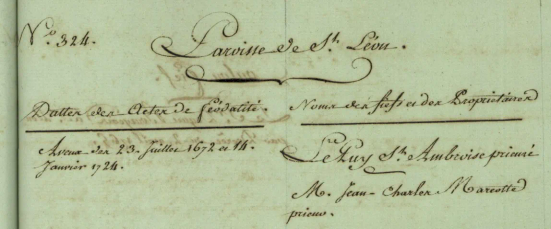 N.º 324.
Paroisse de St. Léon.
Dattes des Actes de féodalité.
Noms des fiefs et des Propriétaires
Aveux des 23. Juillet 1672 et 14.
Janvier 1724.
Le Puy St. Ambroise prieuré
M. Jean-Charles Marcotte
prieur.